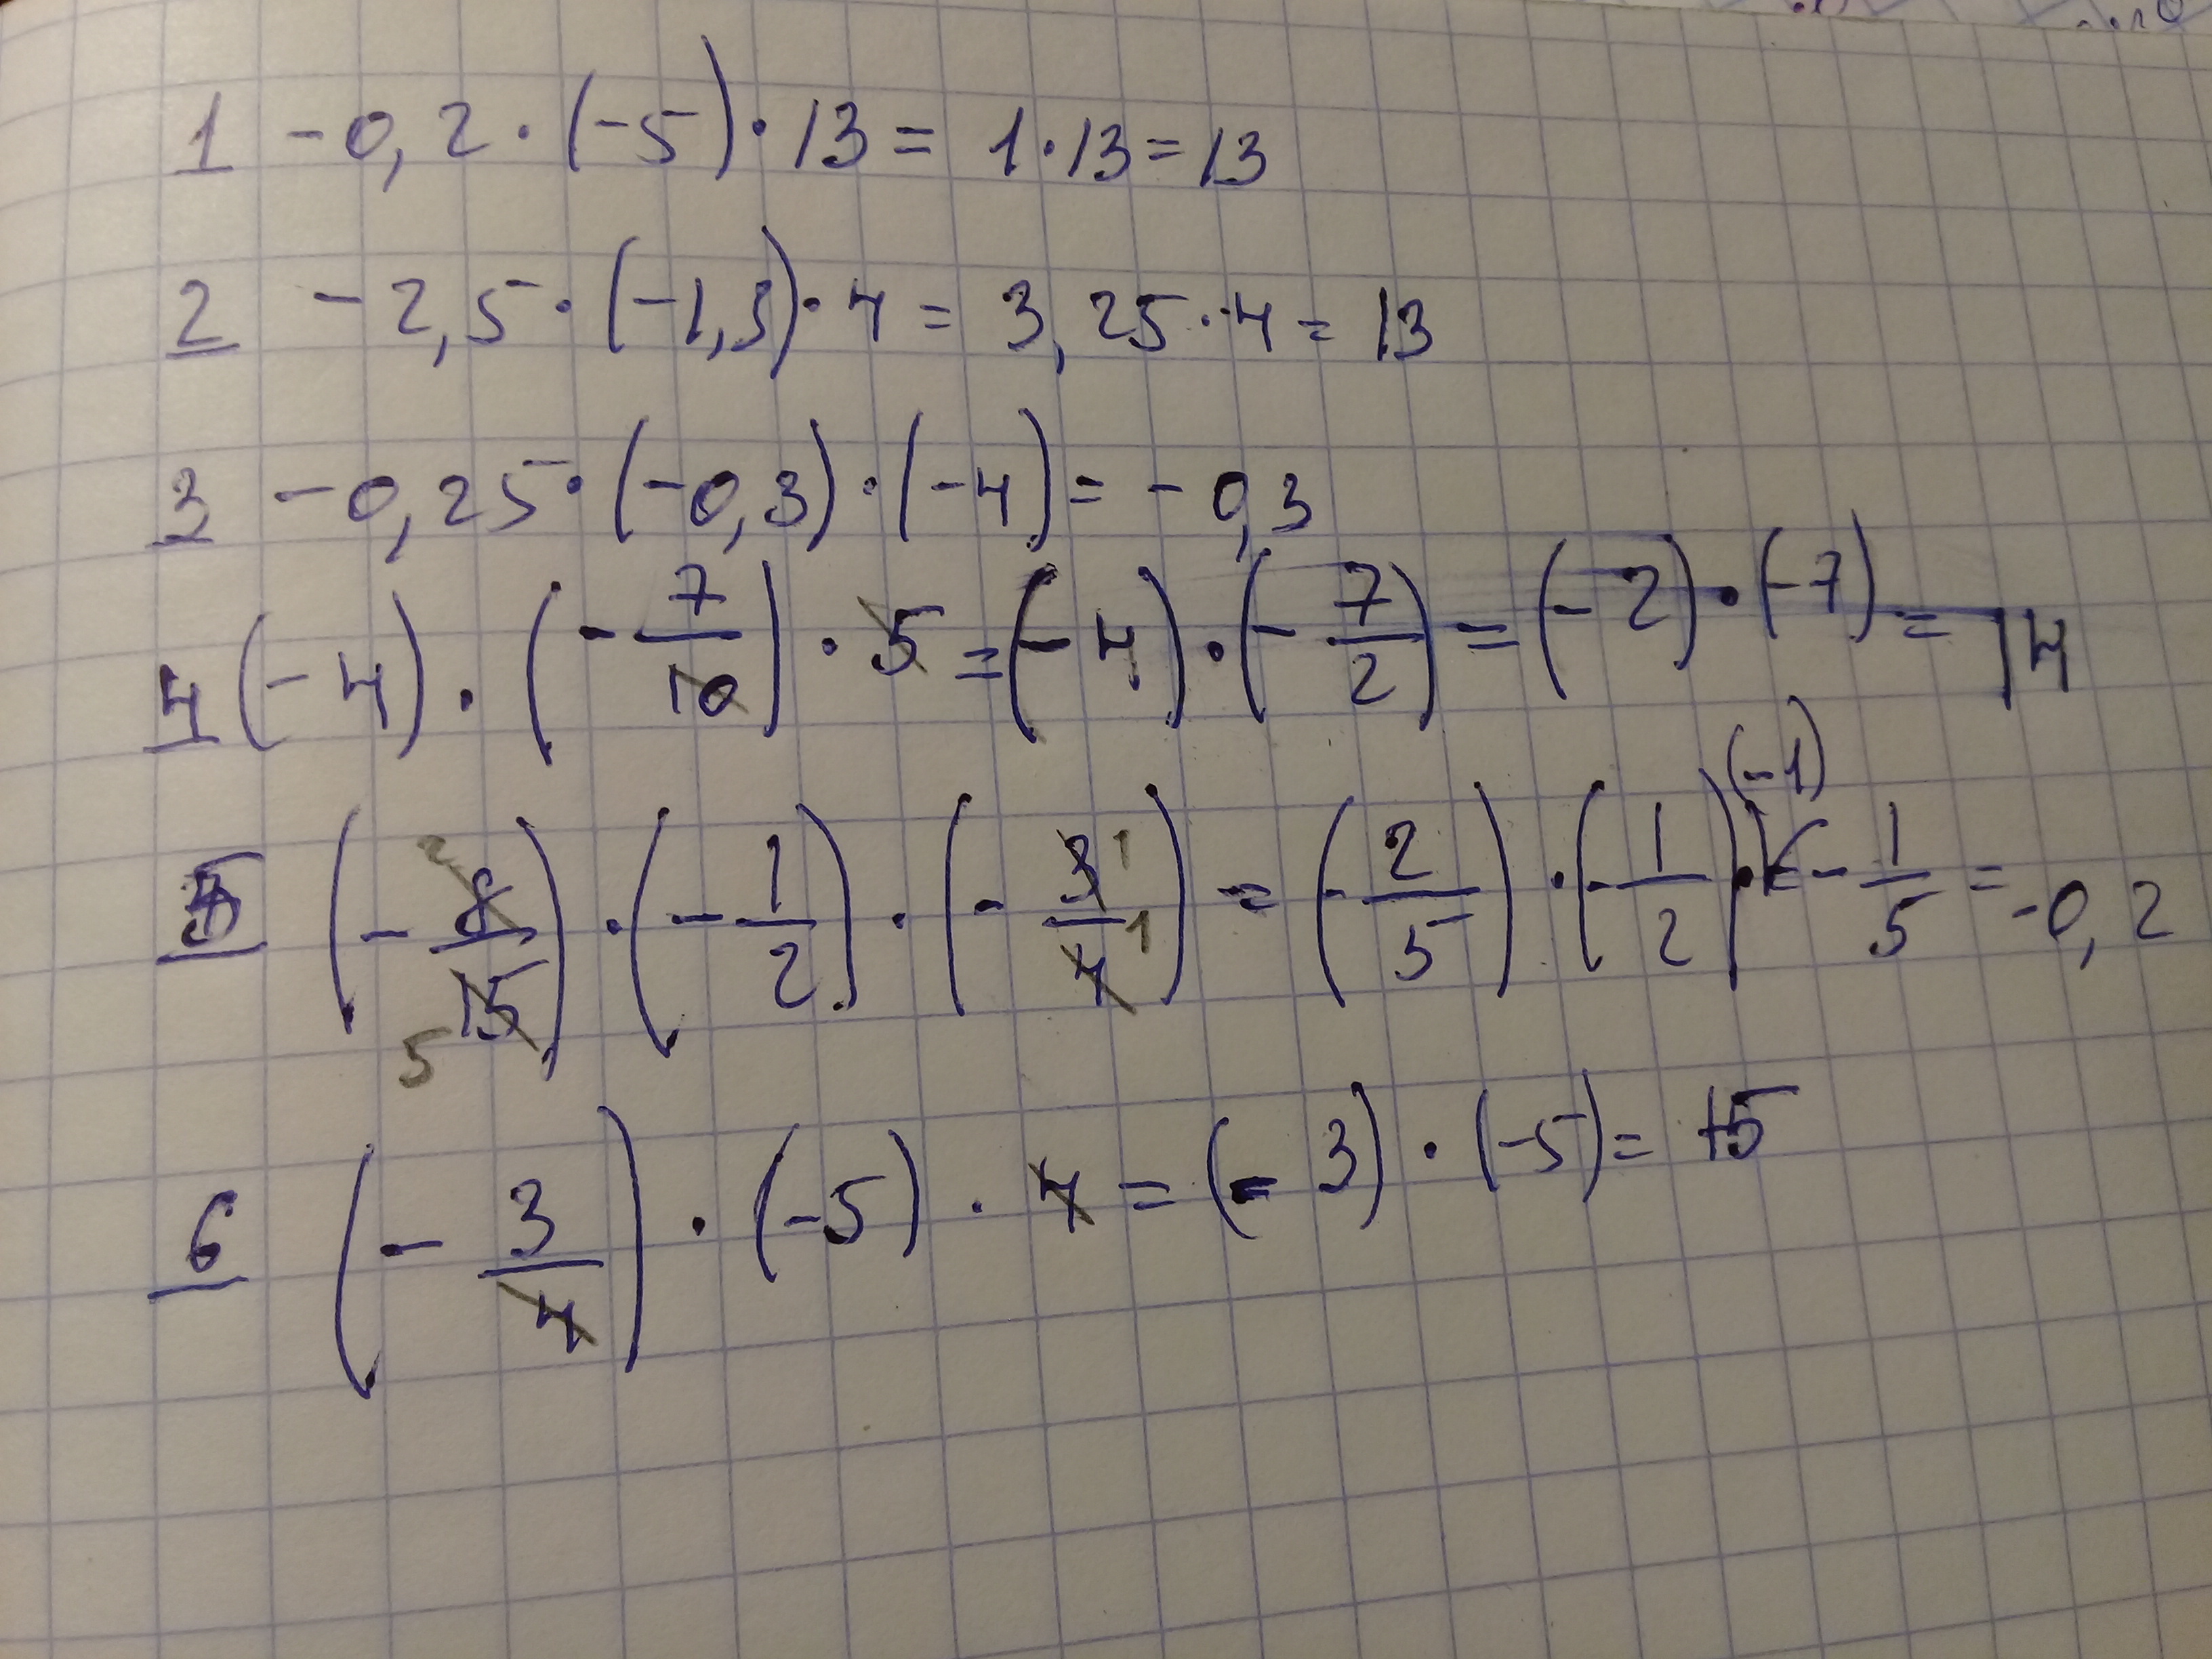 1 -0,2·(-5)·13= 1·13=13
2 -2,5·(-1,3)·4= 3,25·4= 13
3 -0,25·(-0,3)·(-4)= -0,3
4 (-4)·(-7/10)·5=(-4)·(-7/2)=(-2)·(-7)=14
5 (-8/15)·(-1/2)·(-3/4)=(-2/5)·(-1/2)·(-1) = -1/5= -0,2
6 (-3/4)·(-5)·4=(-3)·(-5)= 15